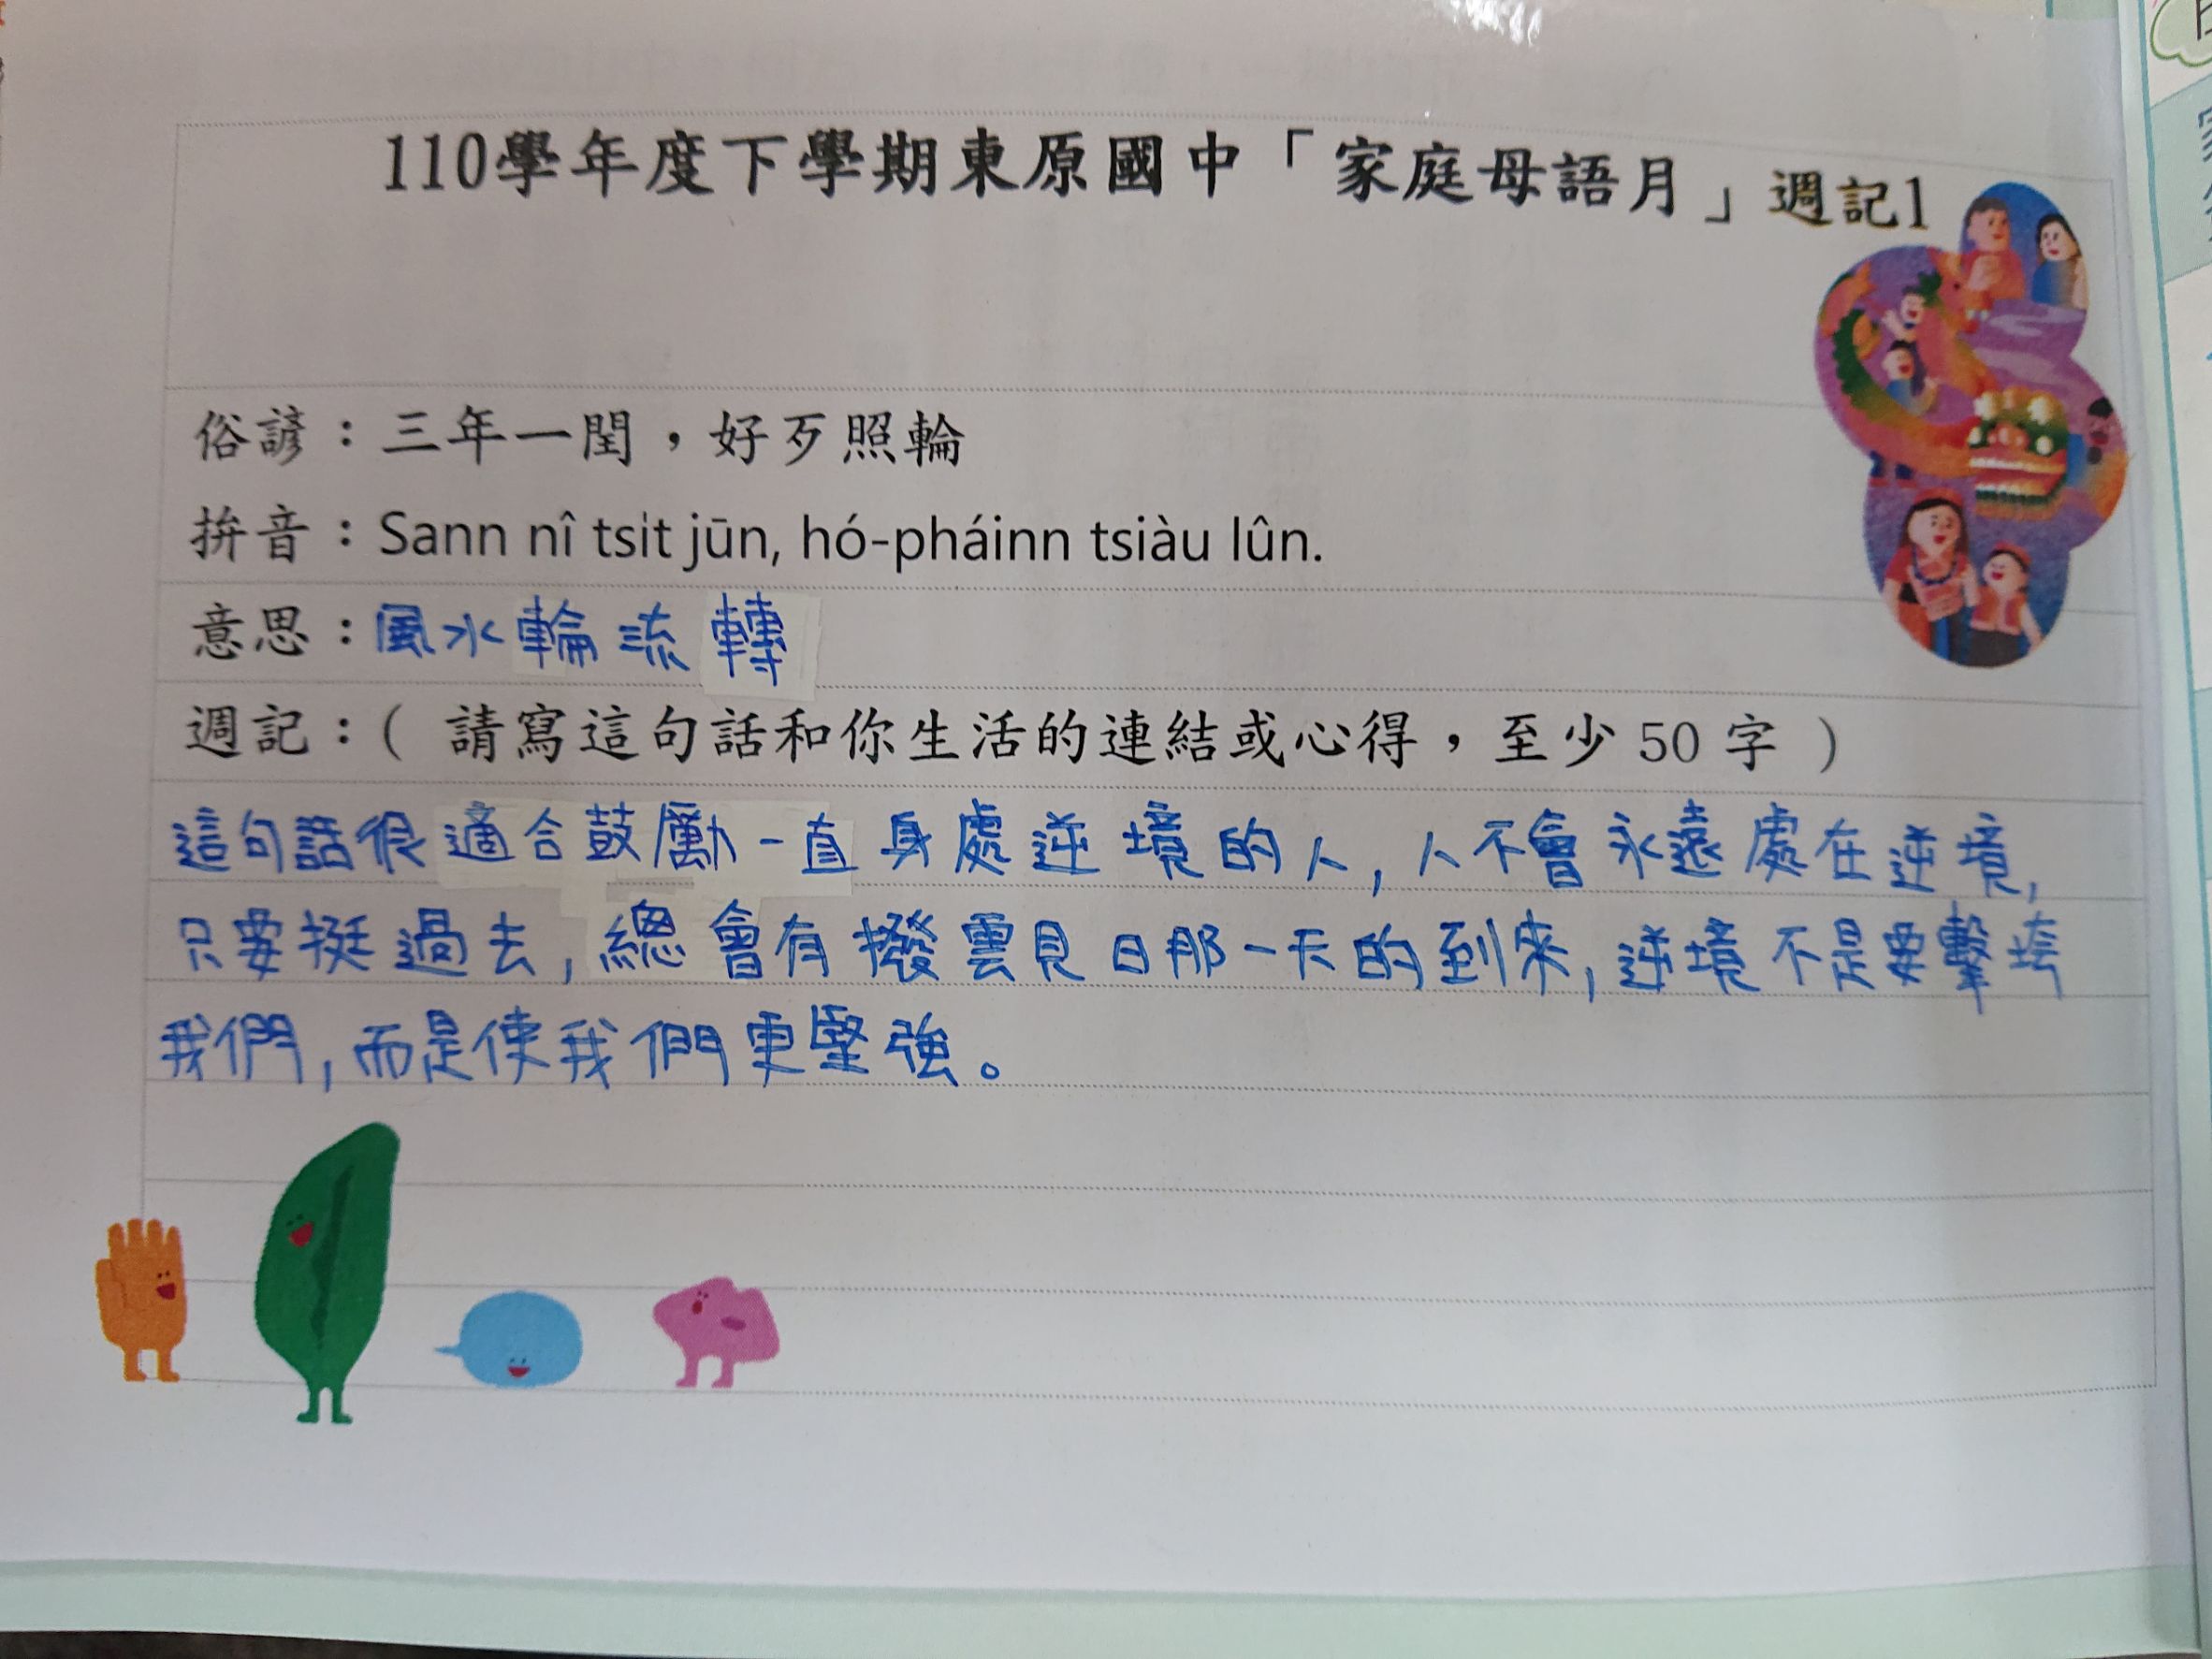 110學年度下學期東原國中「家庭母語月」週記1
俗諺：三年一閏，好歹照輪
拚音：Sann nî tsi̍t jūn, hó-pháinn tsiàu lûn.
意思：風水輪流轉
週記：（ 請寫這句話和你生活的連結或心得，至少 50 字 ）
這句話很適合鼓勵一直身處逆境的人，人不會永遠處在逆境，
只要挺過去，總會有撥雲見日那一天的到來，逆境不是要擊垮
我們，而是使我們更堅強。